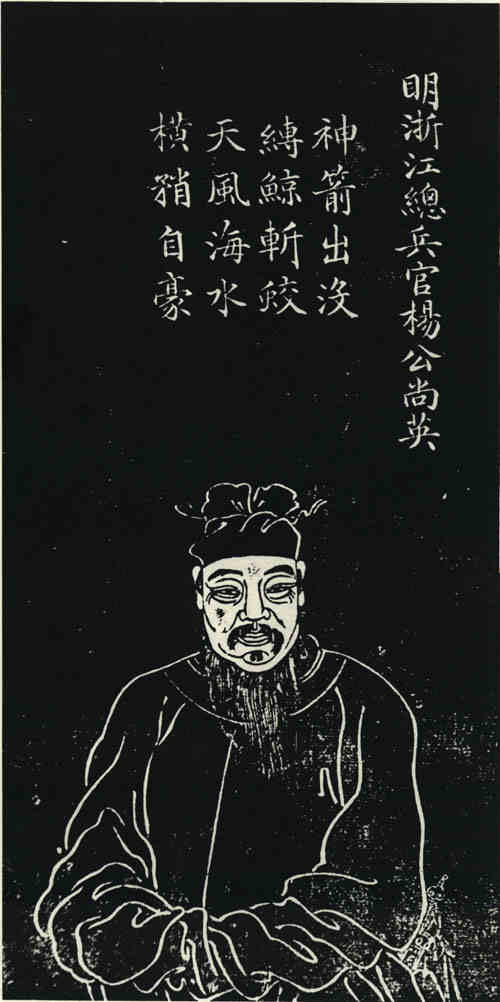 明浙江總兵官楊公尚英
神箭出沒
縳鯨斬蛟
天風海水
橫矟自豪